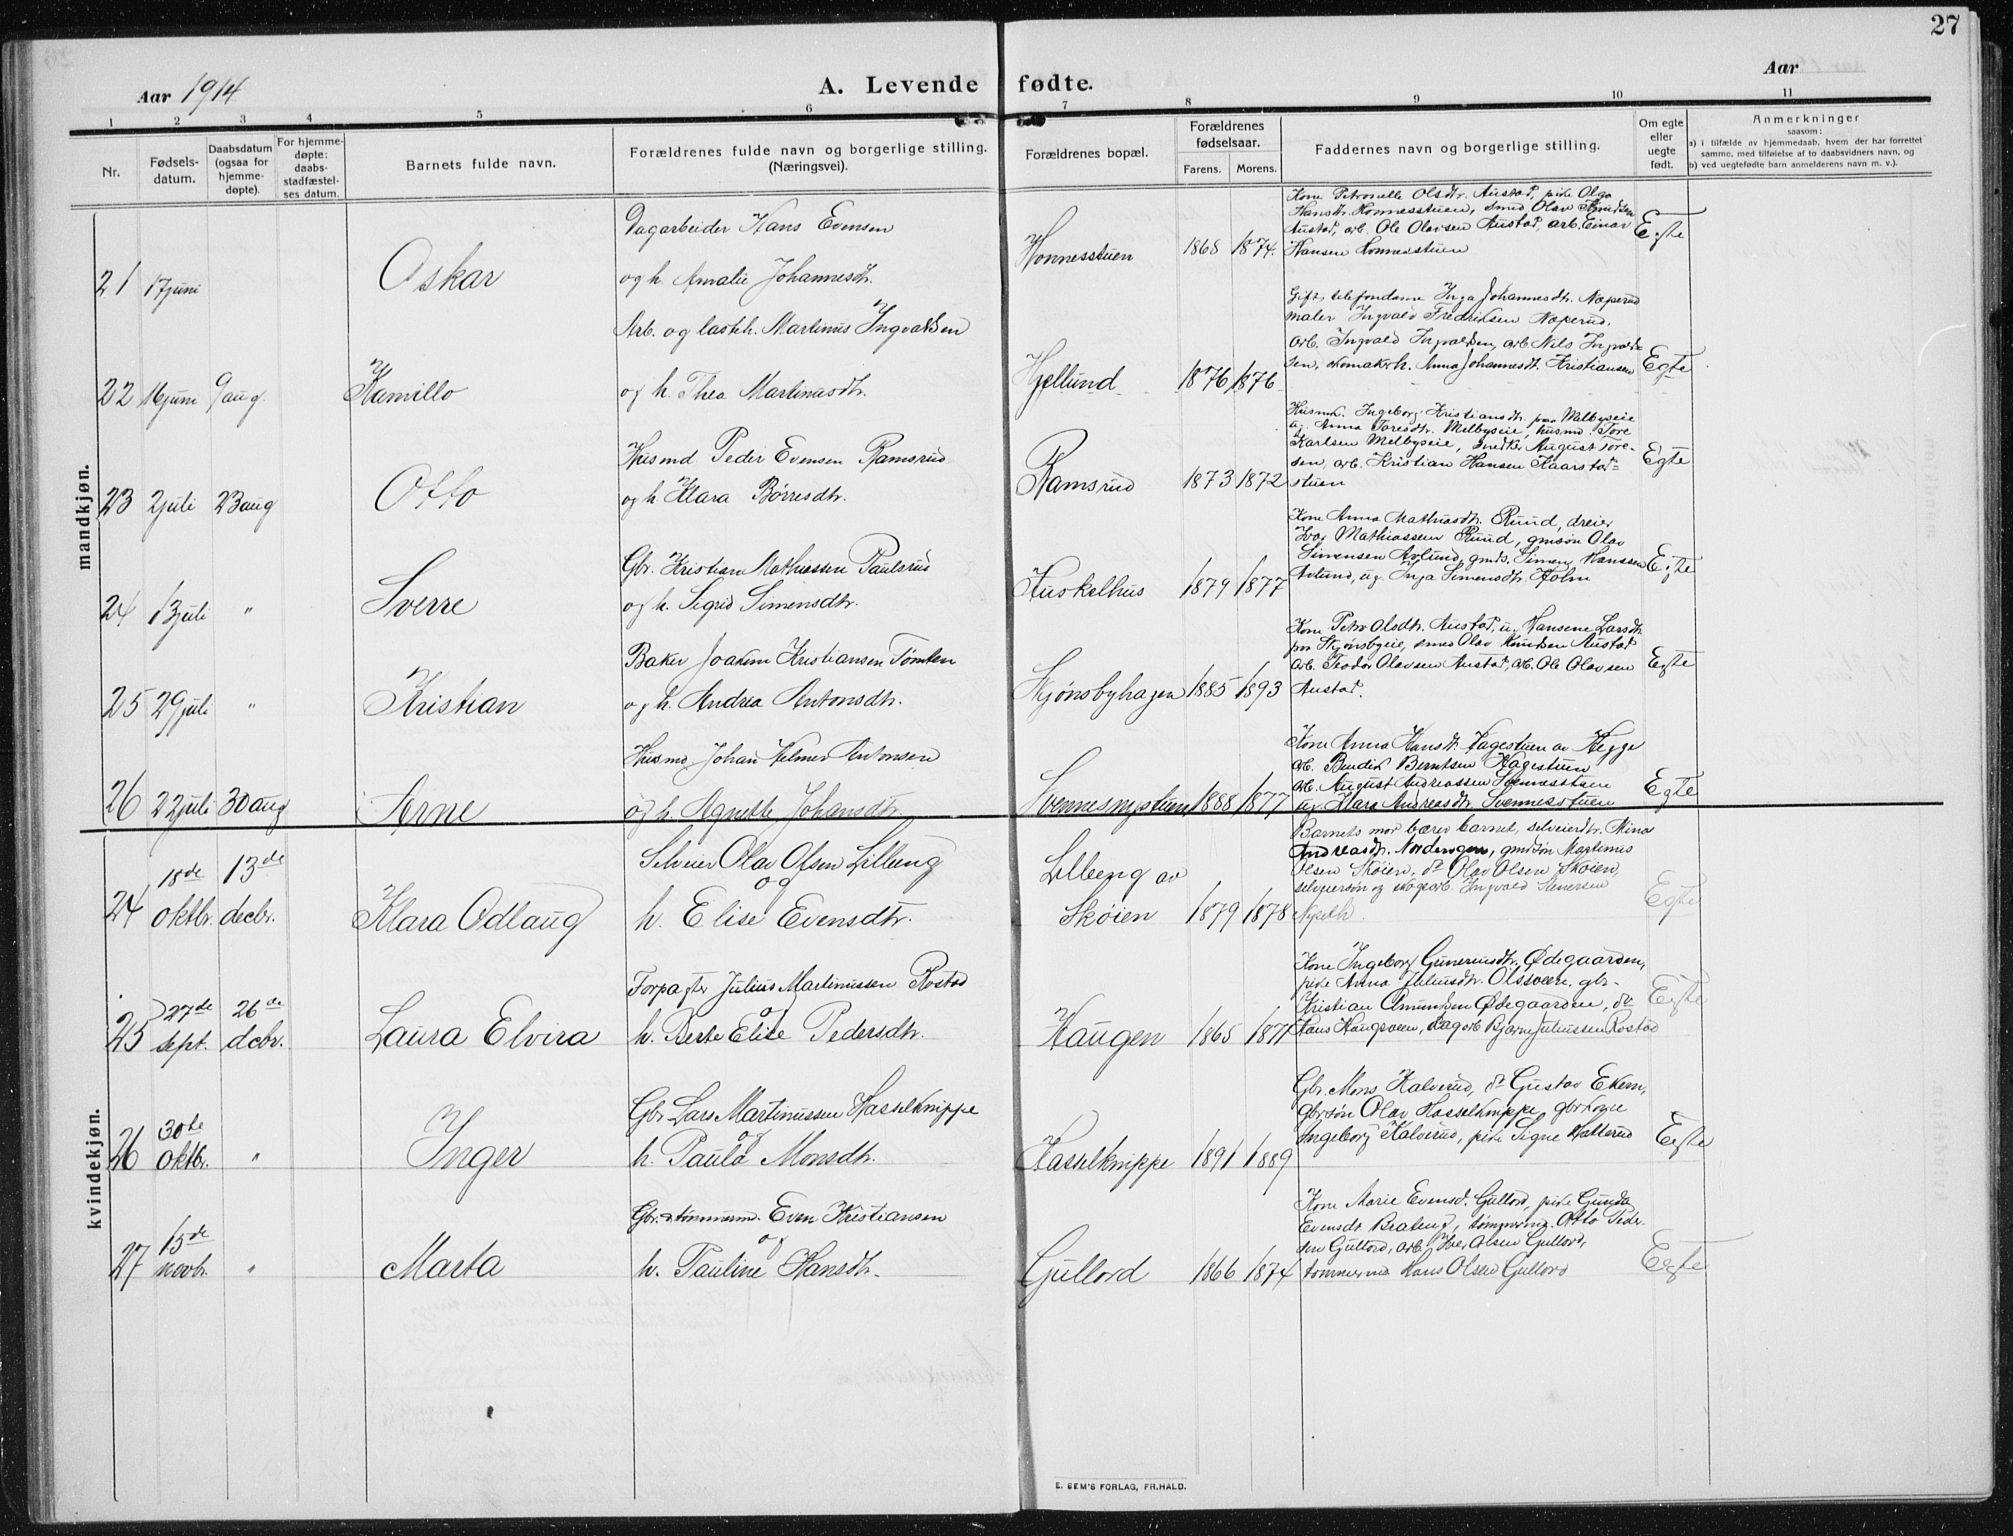 27
Aar 1914
A. Levende fødte.
Aar
1 2 3 4 5 6 7 8 9 10 11
Nr.
Fødsels-
datum.
Daabsdatum
(ogsaa for
hjemme-
døpte).
For hjemme-
døpte:
daabs-
stadfæstel-
ses datum.
Barnets fulde navn.
Forældrenes fulde navn og borgerlige stilling.
(Næringsvei).
Forældrenes bopæl.
Forældrenes
fødselsaar.
Farens. Morens.
Faddernes navn og borgerlige stilling.
Om egte
eller
uegte
født.
Anmerkninger
saasom:
a) i tilfælde av hjemmedaab, hvem der har forrettet
samme, med tilføielse af to daabsvidners navn, og
b) ved uegtefødte barn anmelderens navn m. v.).
mandkjøn.
21 17 juni
Oskar
Dagarbeider Hans Evensen
og h. Amalie Johannesdtr.
Honnesstuen
1868 1874.
Kone Petronelle Olsdtr. Austad, pike Olga
Hansdtr. Honnesstuen, smed Olav Knudsen
Austad, arb. Ole Olavsen Austad, arb. Einar
Hansen Honnesstuen
Egte
22 16 juni 9 aug.
Kamillo
Arb. og lasteh. Martinus Ingvaldsen
og h. Thea Martinusdtr.
Hjellund
1876 1876
Gift telefondame Inga Johannesdtr. Næperud
maler Ingvald Fredriksen Næperud.
arb. Ingvald Ingvaldsen, arb. Nils Ingvald-
sen, skomakerh. Anna Johannesdt. Kristiansen
Egte
23 2 juli 23 aug
Otto
Husmd Peder Evensen Ramsrud
og h. Klara Børresdtr.
Ramsrud
1873 1872
Husmk. Ingeborg Kristiansdtr. paa Melbyseie
ug. Anna Toresdtr. Melbyseie, husmd. Tore
Karlsen Melbyseie, snedker August Tore-
sen, arb. Kristian Hansen Kaarstad-
stuen
Egte
24 13 juli "
Sverre
Gbr. Kristian Mathiassen Paulsrud
og h. Sigrid Simensdtr.
Kuskelhus
1879 1877
Kone Anna Mathiasdtr. Rund, dreier
Ivar Mathiassen Rund, gmsøn Olav
Simensen Avlund, gmd. Simen Hanssen
Avlund, ug. Inga Simensdtr. Holm
Egte
25 29 juli "
Kristian
Baker Joakim Kristiansen Tømten
og h. Andrea Antonsdtr.
Skjønsbyhagen
1885 1893
Kone Petra Olsdtr. Austad, u. Hansene Larsdtr.
paa Skjønsbyeie, smed Olav Knudsen Austad
arb. Teodor Olavsen Austad, arb. Ole Olavsen
Austad.
Egte
26 22 juli 30 aug
Arne
Husmd Johan Helmer Antonsen
og h. Agnethe Johansdtr.
Svennesnystuen
1888 1877
Kone Anna Hansdt. Hagestuen av Hegge
arb. Bendik Berntsen Hagestuen
arb. August Andreassen Svennesstuen
ug. Klara Andreasdtr. Svennesstuen
Egte
kvindekjøn.
24 18de oktbr. 13de decbr.
Klara Odlaug
Selveier Olav Olsen Lilleeng
og
h. Elise Evensdtr.
Lilleeng av
Skøien
1879 1878
Barnets mor bærer barnet, selveierdtr. Mina
Andreasdtr. Nordengen, gmdsøn Martinus
Olsen Skøien, do Olav Olsen Skøien,
selveiersøn og skogsarb. Ingvald Stenersen
Egte
25 27de sept. 26de dcbr.
Laura Elvira
Forpagter Julius Martinussen Rostad
og
h. Berte Elise Pedersdtr.
Haugen
1865 1871
Kone Ingeborg Gunerusdtr. Ødegaarden,
pike Anna Juliusdtr. Olssveen, gbr.
Kristian Amundsen Ødegaarden, do
Hans Haugsveen, dagarb Bjarne Juliussen Rostad
Egte
26 30te oktbr. "
Inger
Gbr. Lars Martinussen Hasselknippe
og
h. Paula Monsdtr.
Hasselknippe
1891 1889
Gbr. Mons Kalverud, do Gustav Ekern,
gbrsøn Olav Hasselknippe, gbrkone
Ingeborg Kalverud, pike Signe Hatterud
Egte
27 15de novbr. "
Marta
Gbr. & tømmermd. Even Kristiansen
og
h. Pauline Hansdtr.
Gullord
1866 1874
Kone Marie Evensd. Gullord, pike Gunda
Evensdt. Brateng, tømmermd. Otto Peder-
sen Gullord, arb. Iver Olsen Gullord,
tømmermd Hans Olsen Gullord
Egte
E. SEM'S FORLAG, FR.HALD.